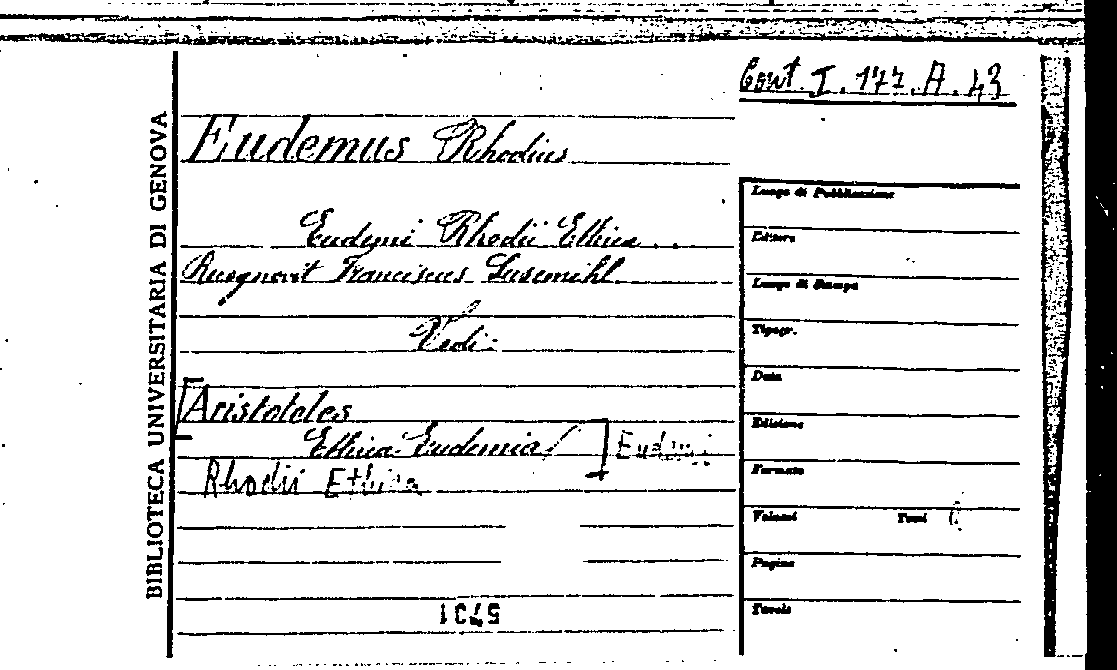 Cont. I. 177. A. 43
BIBLIOTECA UNIVERSITARIA DI GENOVA
Eudemus Rhodius
Eudemi Rhodii Ethica . .
Recognovit Franciscus Susemihl.
Vedi:
[Aristoteles
Ethica Eudemia/ ] Eudemi
Rhodii Ethica
Luogo di Pubblicazione
Editore
Luogo di Stampa
Tipogr.
Data
Edizione
Formato
Volumi Tomi
Pagine
Tavole